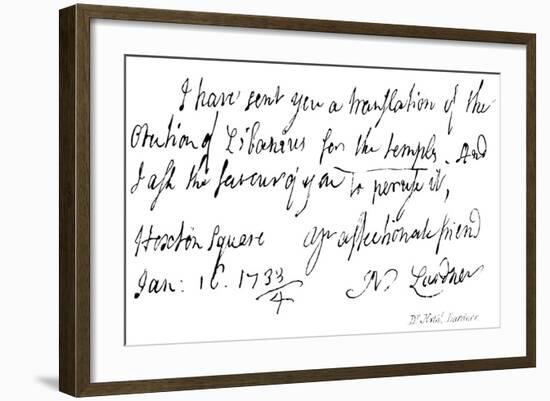 I have sent you a translation of the
Oration of Libanius for the temples. And
I ask the favour of you to peruse it,
Hoxton Square yr affectionate friend
Jan: 16. 1733/4 N Lardner
Dr. Nathl. Lardner.